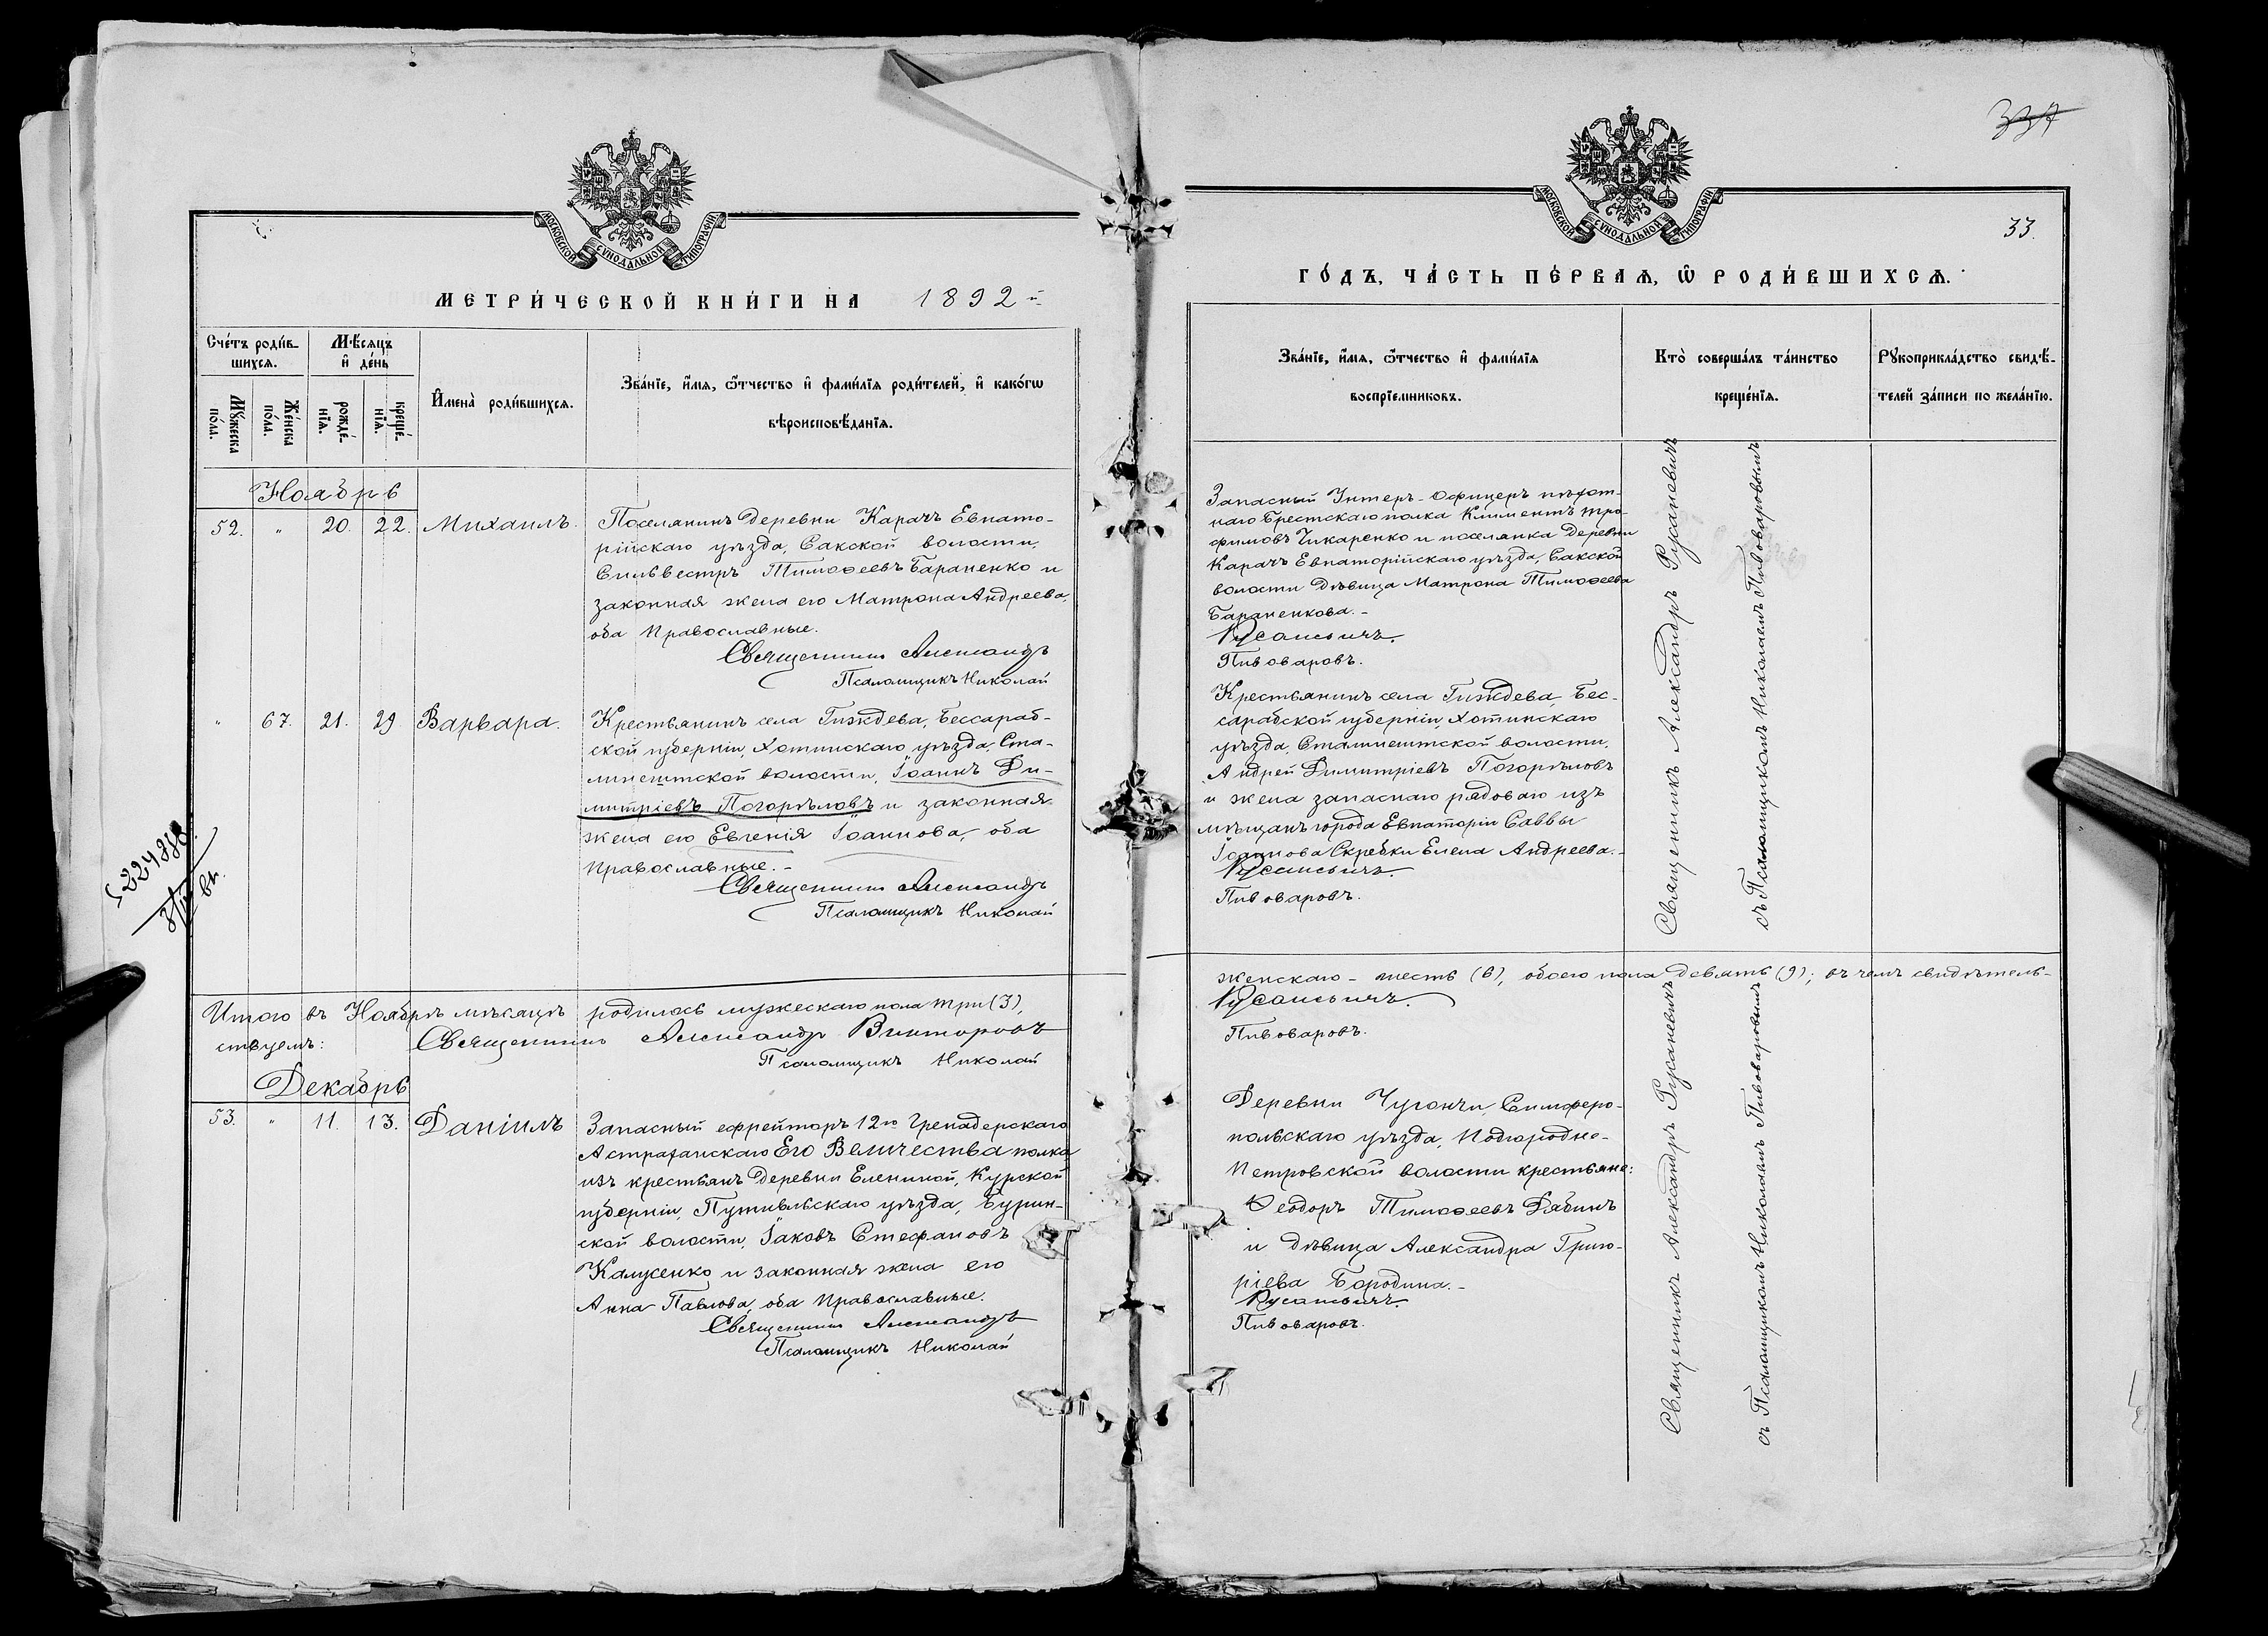 МОСКОВСКОЙ СѴНОДАЛЬНОЙ ТИПОГРАФІИ
МЕТРИ́ЧЕСКОЙ КНИ́ГИ НА 1892 й
Сче́тъ роди́в-
шихсѧ.
Мѣ́сѧцъ
и҆ де́нь
Мꙋ́жеска
по́ла.
Же́нска
по́ла.
рожде́-
нїѧ.
креще́-
нїѧ.
И҆мена̀ роди́вшихсѧ.
Зва́нїе, и҆́мѧ, ѻ҆́тчество и҆ фами́лїѧ роди́телей, и҆ како́гѡ
вѣроисповѣ́данїѧ.
Ноябрь
52. " 20. 22. Михаилъ.
Поселянинъ Деревни Карачъ Евпато-
рійскаго уѣзда, Сакской волости,
Сильвестръ Тимоѳеевъ Бараненко и
законная жена его Матрона Андреева,
оба Православные.
Священникъ Александръ
Псаломщикъ Николай
" 67. 21. 29 Варвара.
Крестьянинъ села Гиждева, Бессараб-
ской губерніи, Хотинскаго уѣзда, Ста-
линештской волости, Іоаннъ Ди-
митріевъ Погорѣловъ и законная
жена его Евгенія Іоаннова, оба
Православные. -
Священникъ Александръ
Псаломщикъ Николай
Итого въ Ноябрѣ мѣсяцѣ родилось мужескаго пола три (3),
ствуемъ: Священникъ Александръ Викторовъ
Псаломщикъ Николай
Декабрь
53. " 11. 13. Даніилъ
Запасный ефрейторъ 12го Гренадерскаго
Астраханскаго Его Величества полка
изъ крестьянъ Деревни Елениной, Курской
губерніи, Путивльскаго уѣзда, Бурин-
ской волости, Іаковъ Стефановъ
Калусенко и законная жена его
Анна Павлова, оба Православные.
Священникъ Александръ
Псаломщикъ Николай
33.
МОСКОВСКОЙ СѴНОДАЛЬНОЙ ТИПОГРАФІИ
ГО́ДЪ, ЧА́СТЬ ПЕ́РВАѦ, Ѡ҆ РОДИ́ВШИХСѦ.
Зва́нїе, и҆́мѧ, ѻ҆́тчество и҆ фами́лїѧ
воспрїе́мниковъ.
Кто̀ соверша́лъ та́инство
креще́нїѧ.
Рꙋкоприкла́дство свидѣ́-
телей за́писи по жела́нїю.
Запасный Унтеръ-Офицеръ пѣхот-
наго Брестскаго полка Климентъ Тро-
фимовъ Чикаренко и поселянка Деревни
Карачъ Евпаторійскаго уѣзда, Сакской
волости дѣвица Матрона Тимоѳеева
Бараненкова. -
Русаневичъ.
Пивоваровъ.
Крестьянинъ села Гиждева, Бес-
сарабской губерніи, Хотинскаго
уѣзда, Сталинештской волости,
Андрей Димитріевъ Погорѣловъ
и жена запаснаго рядоваго изъ
мѣщанъ города Евпаторіи Саввы
Іоаннова Скребки Елена Андреева. -
Русаневичъ.
Пивоваровъ.
Священникъ Александръ Русаневичъ
съ Псаломщикомъ Николаемъ Пивоваровымъ
женскаго - шесть (6), обоего пола девять (9); въ чемъ свидѣтель-
Русаневичъ.
Пивоваровъ.
Деревни Чугончи, Симферо-
польскаго уѣзда, Подгородне-
Петровской волости крестьяне:
Ѳеодоръ Тимоѳеевъ Рябинъ
и дѣвица Александра Григо-
ріева Бородина. -
Русаневичъ.
Пивоваровъ.
Священникъ Александръ Русаневичъ
съ Псаломщикомъ Николаемъ Пивоваровымъ